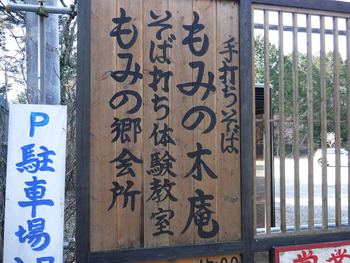 手打ちそば
もみの木庵
そば打ち体験教室
もみの郷会所
P駐車場